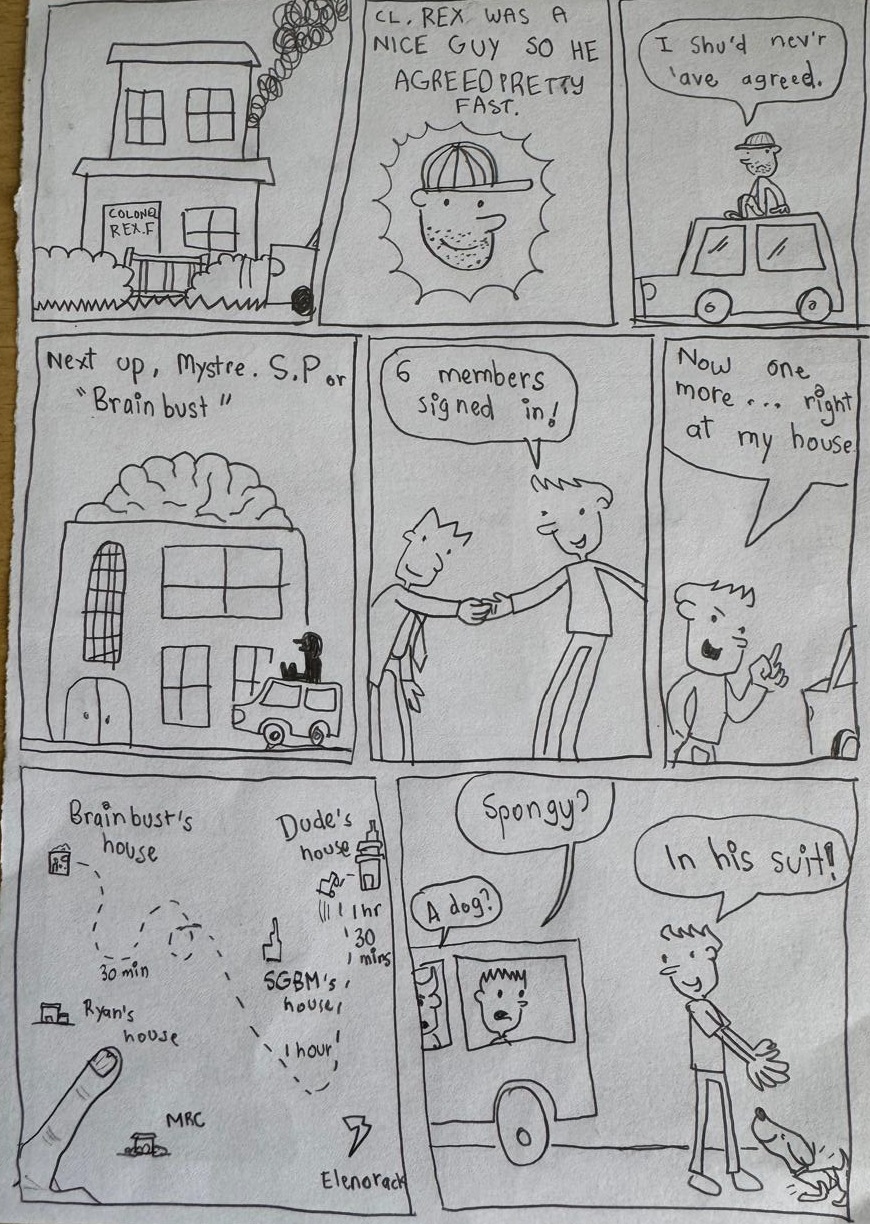 COLONEL
REX.F
CL. REX WAS A
NICE GUY SO HE
AGREED PRETTY
FAST.
I shu'd nev'r
'ave agreed.
Next up, Mystre. S.P or
"Brain bust"
6 members
signed in!
Now one
more... right
at my house
Brainbust's
house
Dude's
house
1 hr
30
mins
30 min
SGBM's
house
Ryan's
house
1 hour
MRC
Elenorack
Spongy?
A dog?
In his suit!